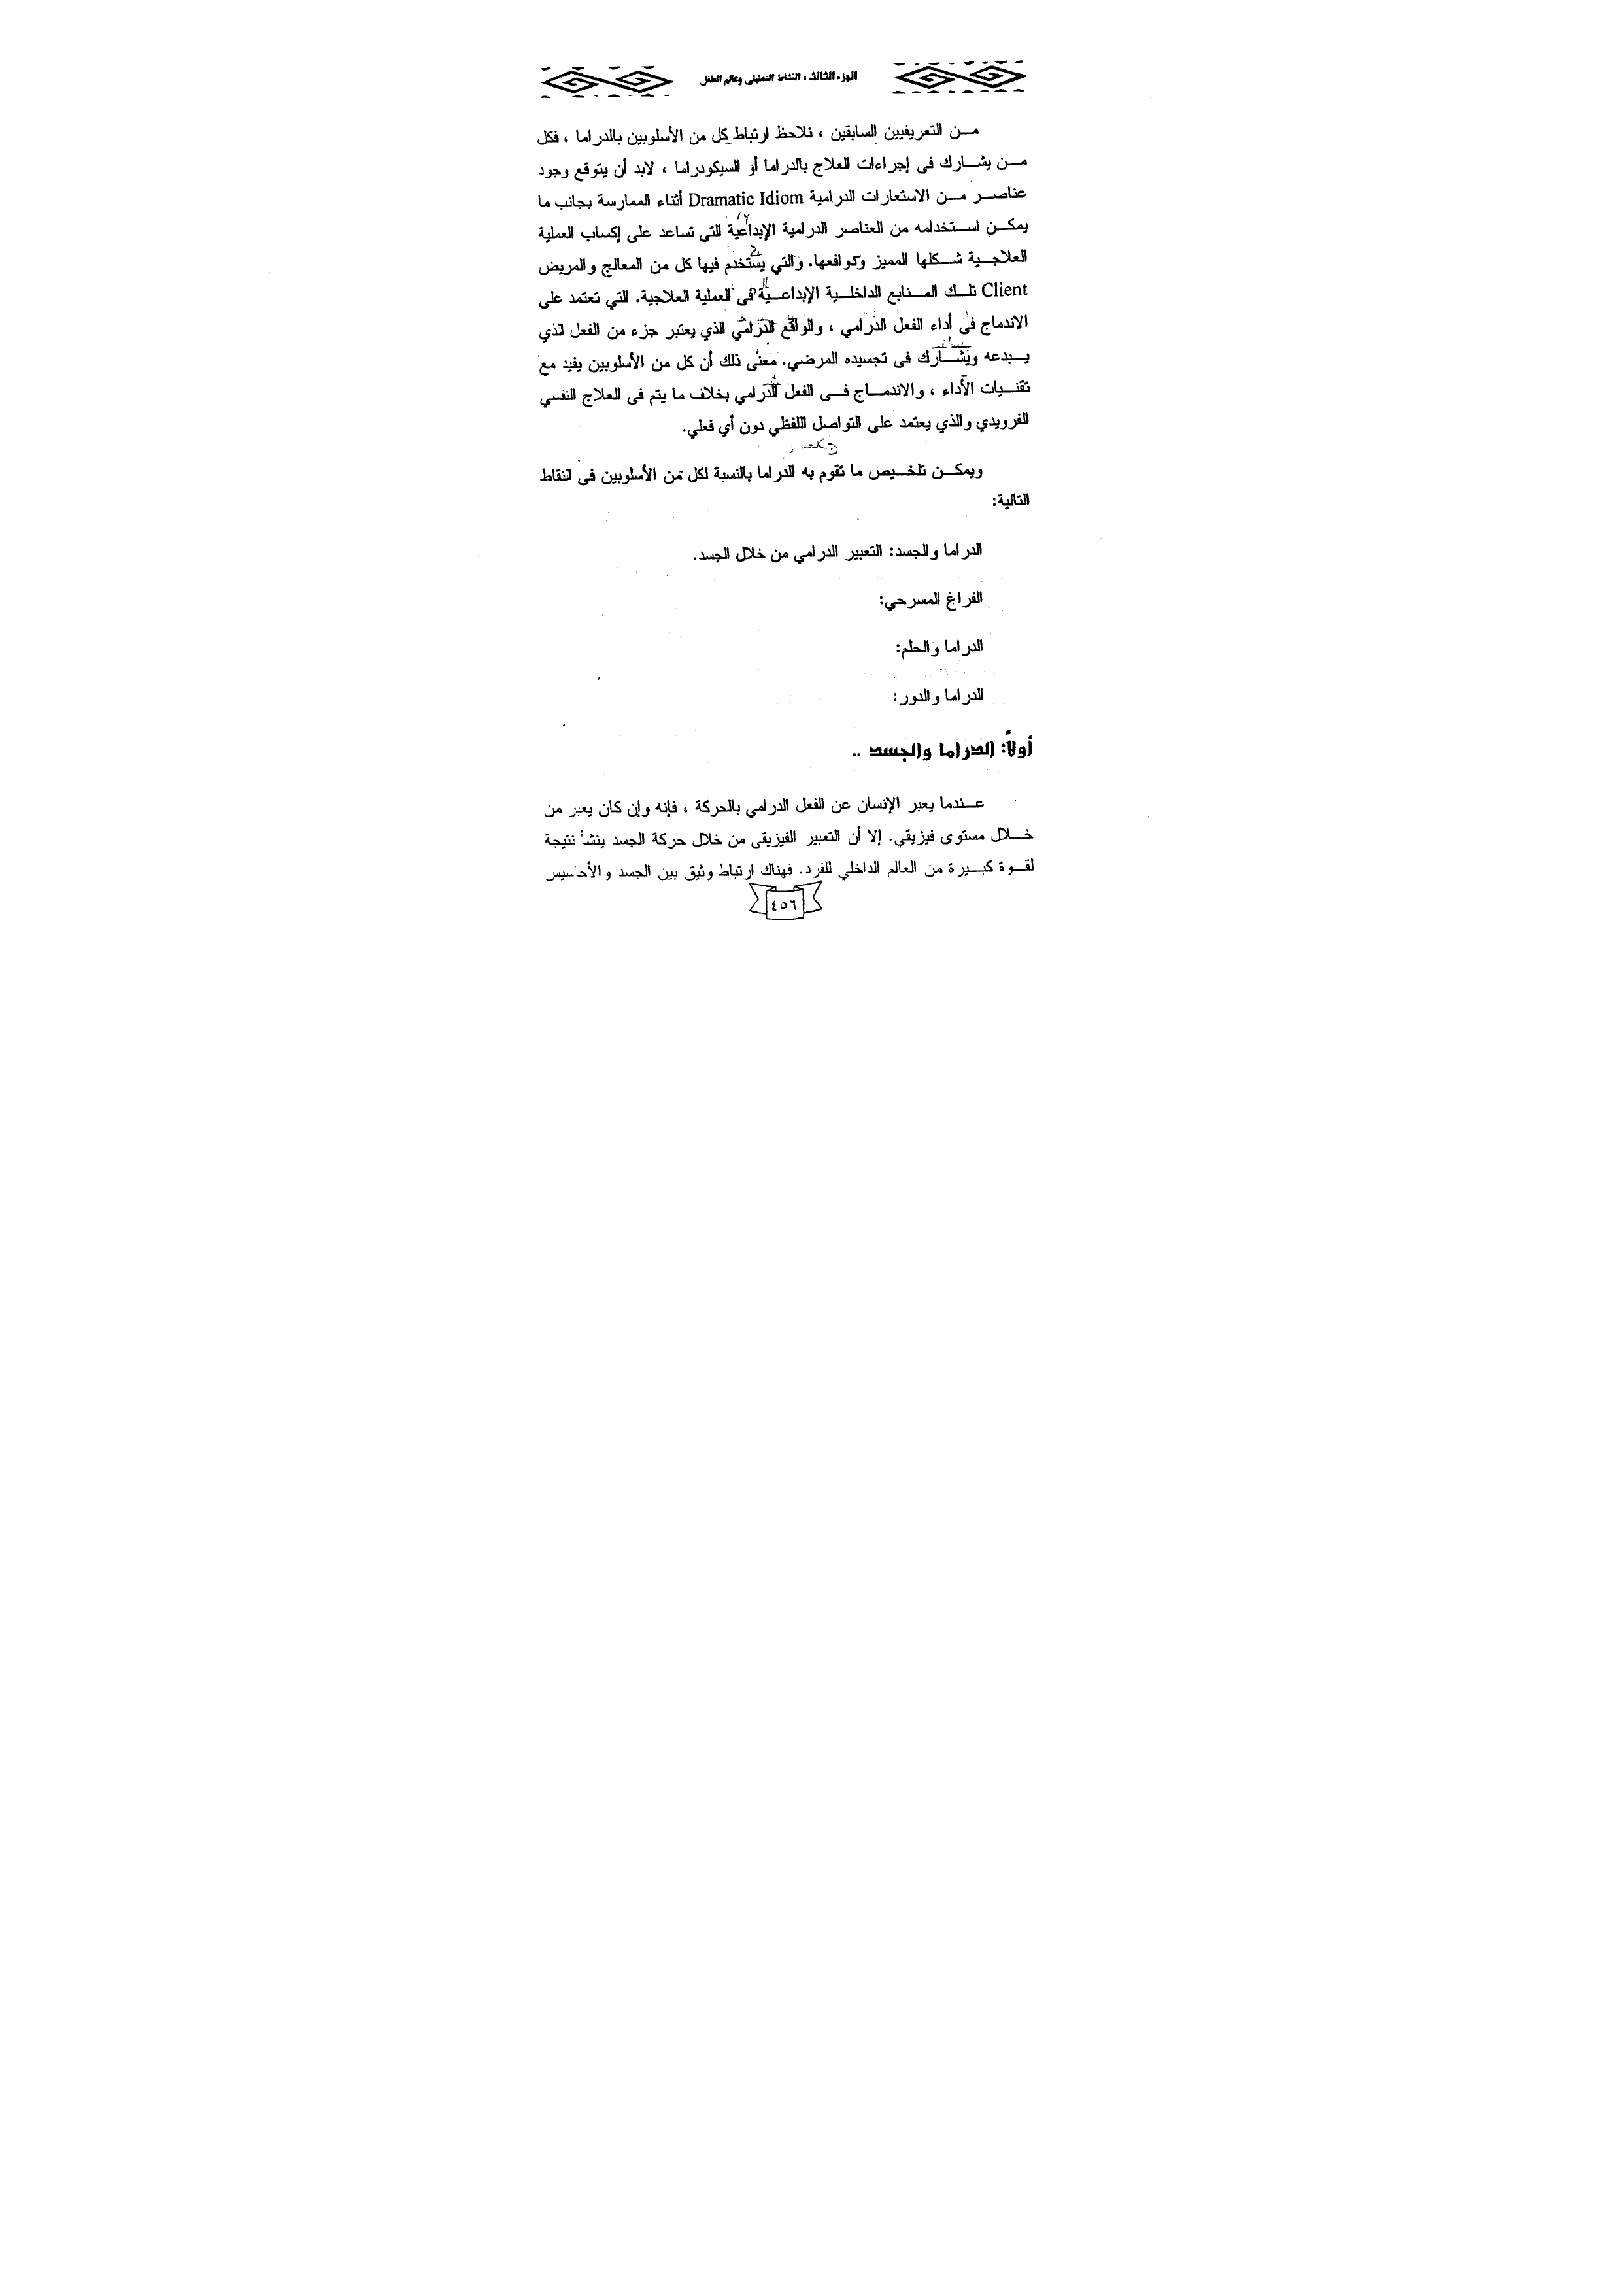 الجزء الثالث : النشاط التمثيلى وعالم الطفل
من التعريفيين السابقين ، نلاحظ ارتباط كل من الأسلوبين بالدراما ، فكل
من يشارك فى إجراءات العلاج بالدراما أو السيكودراما ، لابد أن يتوقع وجود
عناصر من الاستعارات الدرامية Dramatic Idiom أثناء الممارسة بجانب ما
يمكن استخدامه من العناصر الدرامية الإبداعية التى تساعد على إكساب العملية
العلاجية شكلها المميز ودوافعها. والتي يستخدم فيها كل من المعالج والمريض
Client تلك المنابع الداخلية الإبداعية فى العملية العلاجية. التي تعتمد على
الاندماج فى أداء الفعل الدرامي ، والواقع الدرامي الذي يعتبر جزء من الفعل الذي
يبدعه ويشارك فى تجسيده المرضي. معنى ذلك أن كل من الأسلوبين يفيد مع
تقنيات الأداء ، والاندماج فى الفعل الدرامي بخلاف ما يتم فى العلاج النفسي
الفرويدي والذي يعتمد على التواصل اللفظي دون أي فعلي.
ويمكن تلخيص ما تقوم به الدراما بالنسبة لكل من الأسلوبين فى النقاط
التالية:
الدراما والجسد: التعبير الدرامي من خلال الجسد.
الفراغ المسرحي:
الدراما والحلم:
الدراما والدور:
أولاً: الدراما والجسد ..
عندما يعبر الإنسان عن الفعل الدرامي بالحركة ، فإنه وإن كان يعبر من
خلال مستوى فيزيقي. إلا أن التعبير الفيزيقى من خلال حركة الجسد ينشأ نتيجة
لقوة كبيرة من العالم الداخلي للفرد. فهناك ارتباط وثيق بين الجسد والأحاسيس
٤٥٦